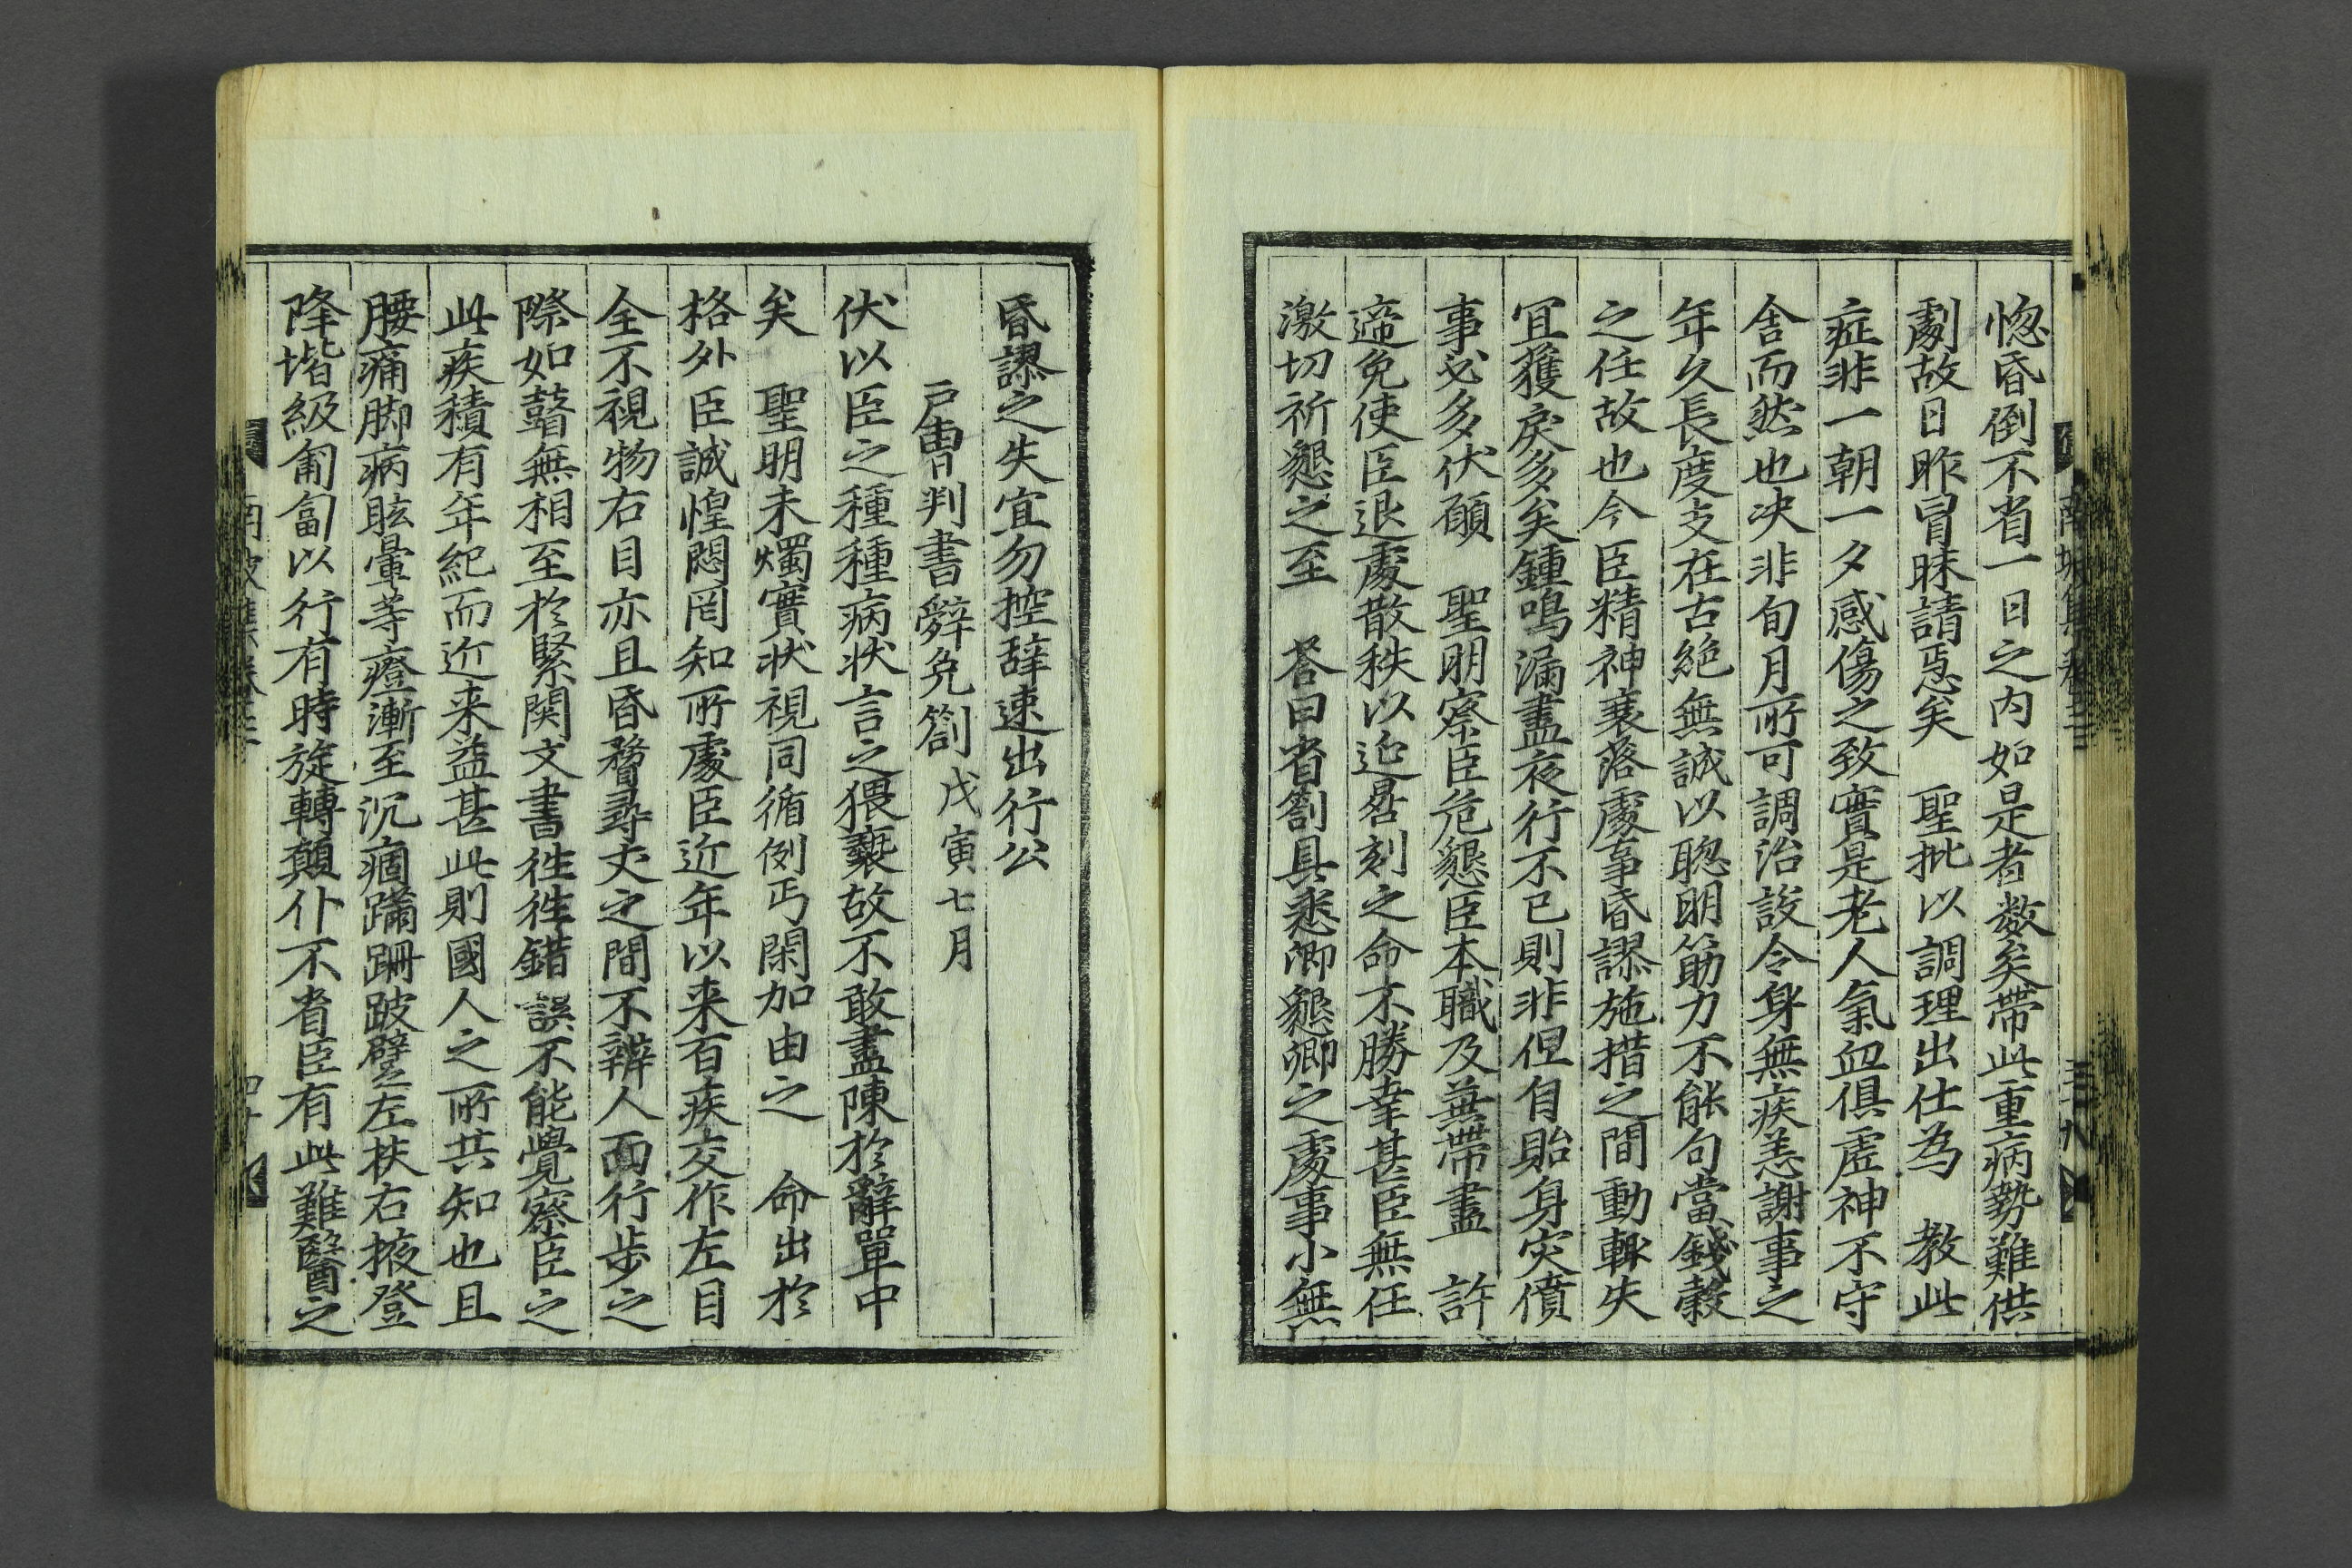 惚昏倒不省一日之內如是者数矣帶此重病勢難供
劇故日昨冒昧請急矣　聖批以調理出仕為　教此
症非一朝一夕感傷之致實是老人氣血俱虛神不守
舍而然也决非旬月所可調治設令身無疾恙謝事之
年久長度支在古絶無誠以聦明筋力不能句當錢穀
之任故也今臣精神衰落處事昏謬施措之間動輒失
冝獲戾多矣鍾鳴漏盡夜行不已則非但自貽身灾僨
事必多伏願　聖明察臣危懇臣本職及兼帶盡　許
遞免使臣退處散秩以延晷刻之命不勝幸甚臣無任
激切祈懇之至　答曰省劄具悉卿懇卿之處事小無
昏謬之失宜勿控辞速出行公
戶曺判書辭免劄戊寅七月
伏以臣之種種病状言之猥褻故不敢盡陳於辭單中
矣　聖明未燭實状視同循例丐閑加由之　命出於
格外臣誠惶悶罔知所處臣近年以来百疾交作左目
全不視物右目亦且昏瞀尋丈之間不辨人面行步之
際如瞽無相至於緊関文書徃徃錯誤不能覺察臣之
此疾積有年紀而近来益甚此則國人之所共知也且
腰痛脚病眩暈等癥漸至沉痼蹣跚跛躄左扶右掖登
降堦級匍匐以行有時旋轉顛仆不省臣有此難醫之